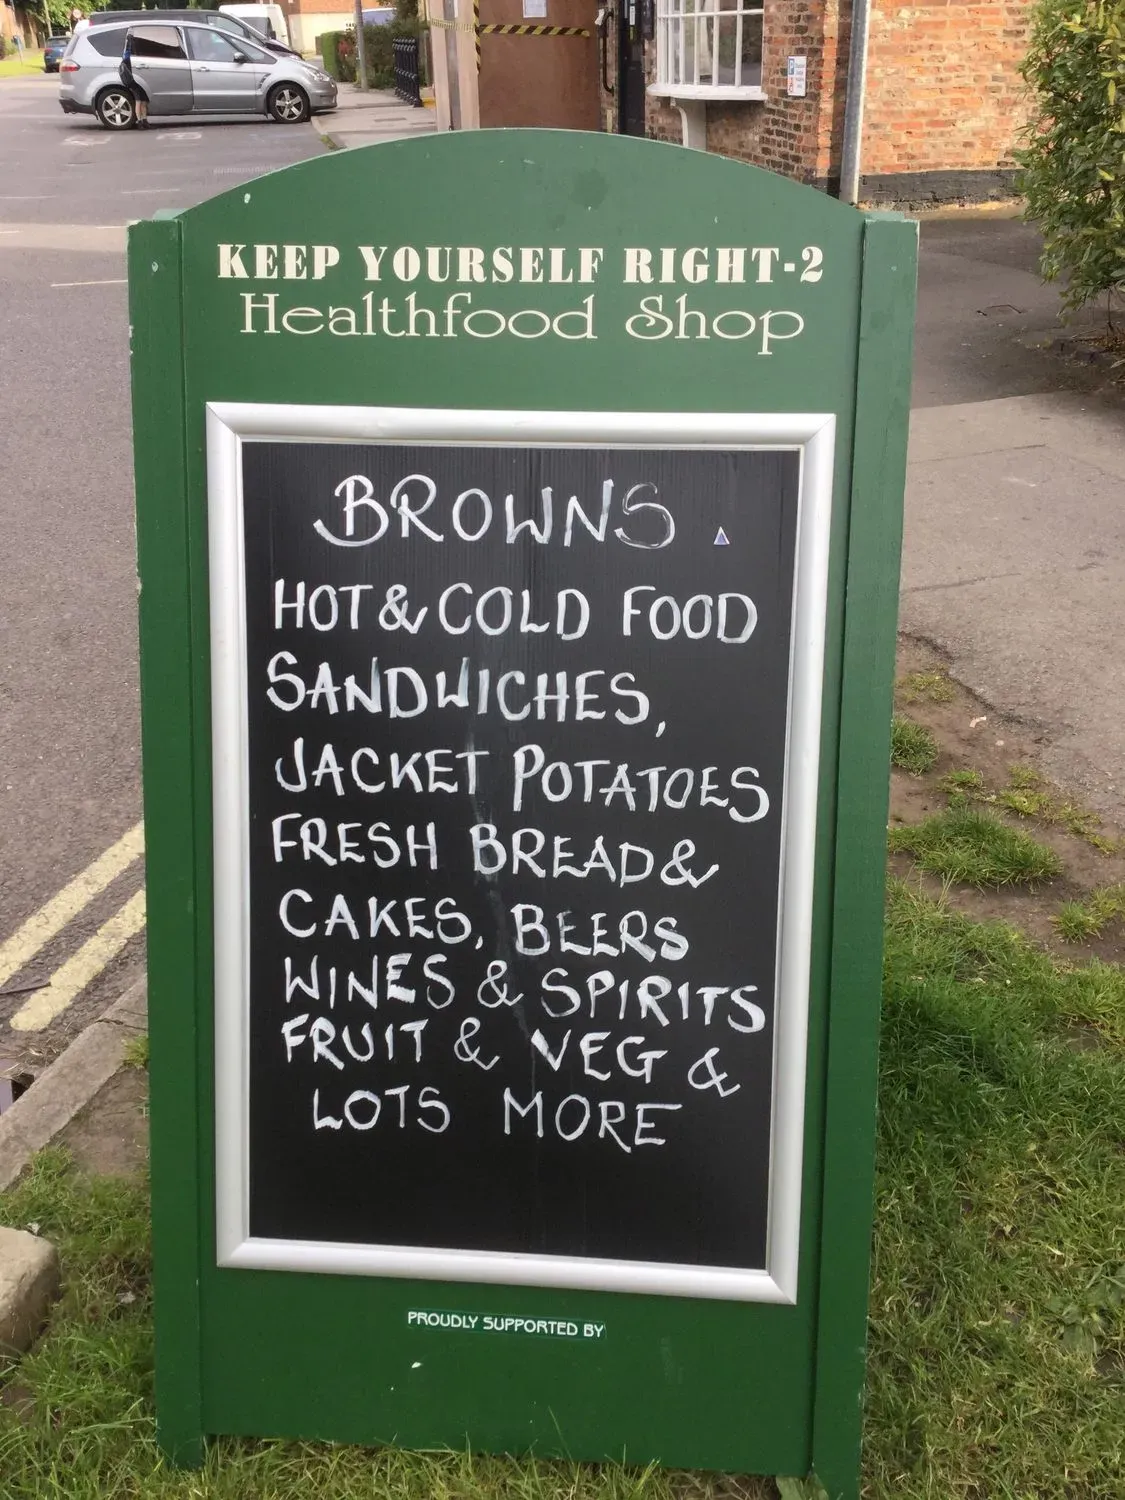 KEEP YOURSELF RIGHT-2
Healthfood Shop
BROWNS.
HOT & COLD FOOD
SANDWICHES,
JACKET POTATOES
FRESH BREAD &
CAKES, BEERS
WINES & SPIRITS
FRUIT & VEG &
LOTS MORE
PROUDLY SUPPORTED BY